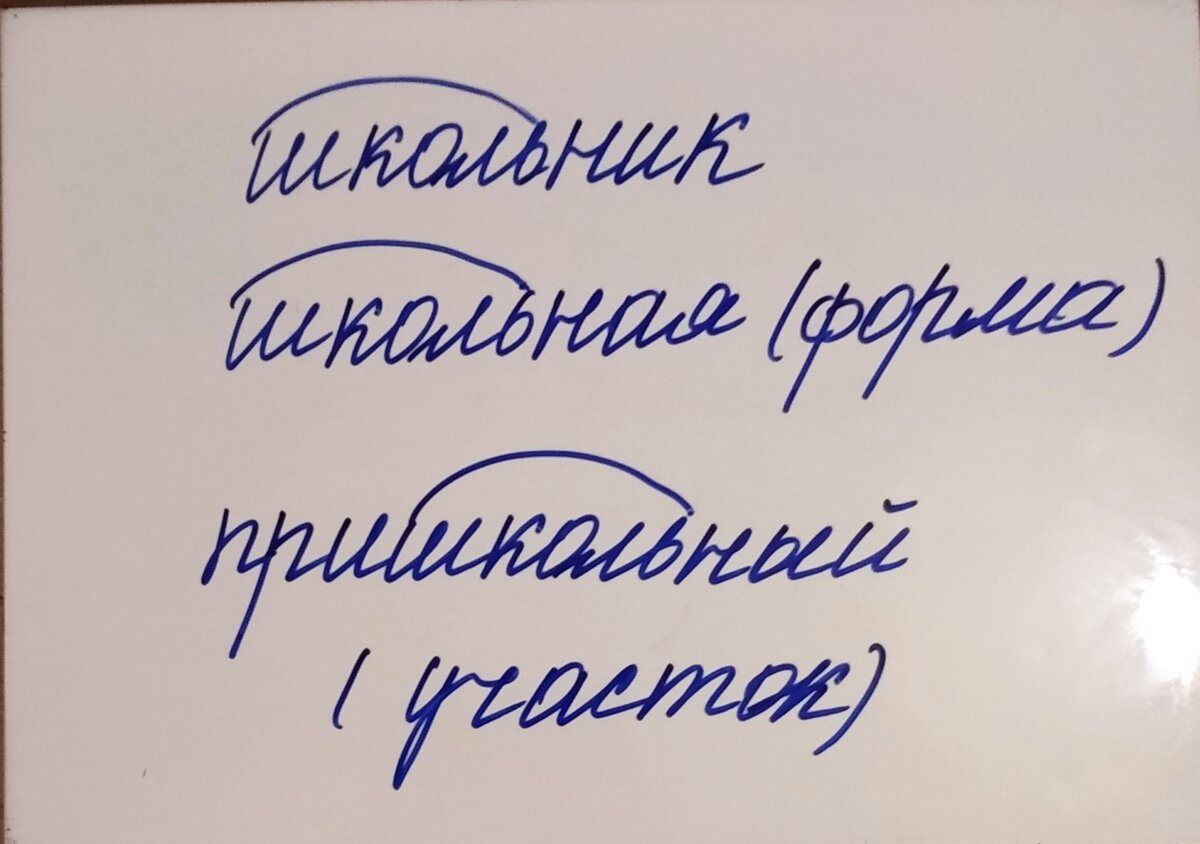 школьник
школьная (форма)
пришкольный
(участок)